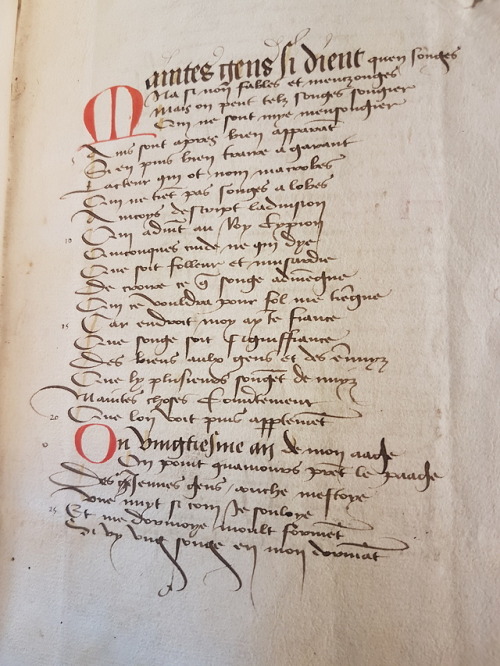 Maintes gens si dient quen songes
Na si non fables et mentzonges
Mais on peut telz songes songier
Qui ne sont mye mensongier
Ains sont apres bien apparat̄
Si en puis bien traire a garant
Lacteur qui ot nom macrobes
Qui ne tiēt pas songes a lobes
Aincoys descript laduision
Qui aduīt au Roy Cypion
10
Quiconques cuide ne qui dye
Que soit folleur et musardie
De croire ce q̄ songe adueigne
Qui ce vouldra pour fol me tiēgne
15
Car endroit moy ay ie fiance
Que songe soit signiffiance
Des biens aulx gens et des ēnuyz
Que ly plusieurs songēt de nuyz
Maintes choses
20
Que lon voit puis appertemēt
On vingtiesme an de mon aage
On point quamours prēt le paage
Des Jeunes gens couche mestoye
25
Vne nuyt si com Je souloye
Et me dormoye moult formēt
Si vy vng songe en mon dormāt